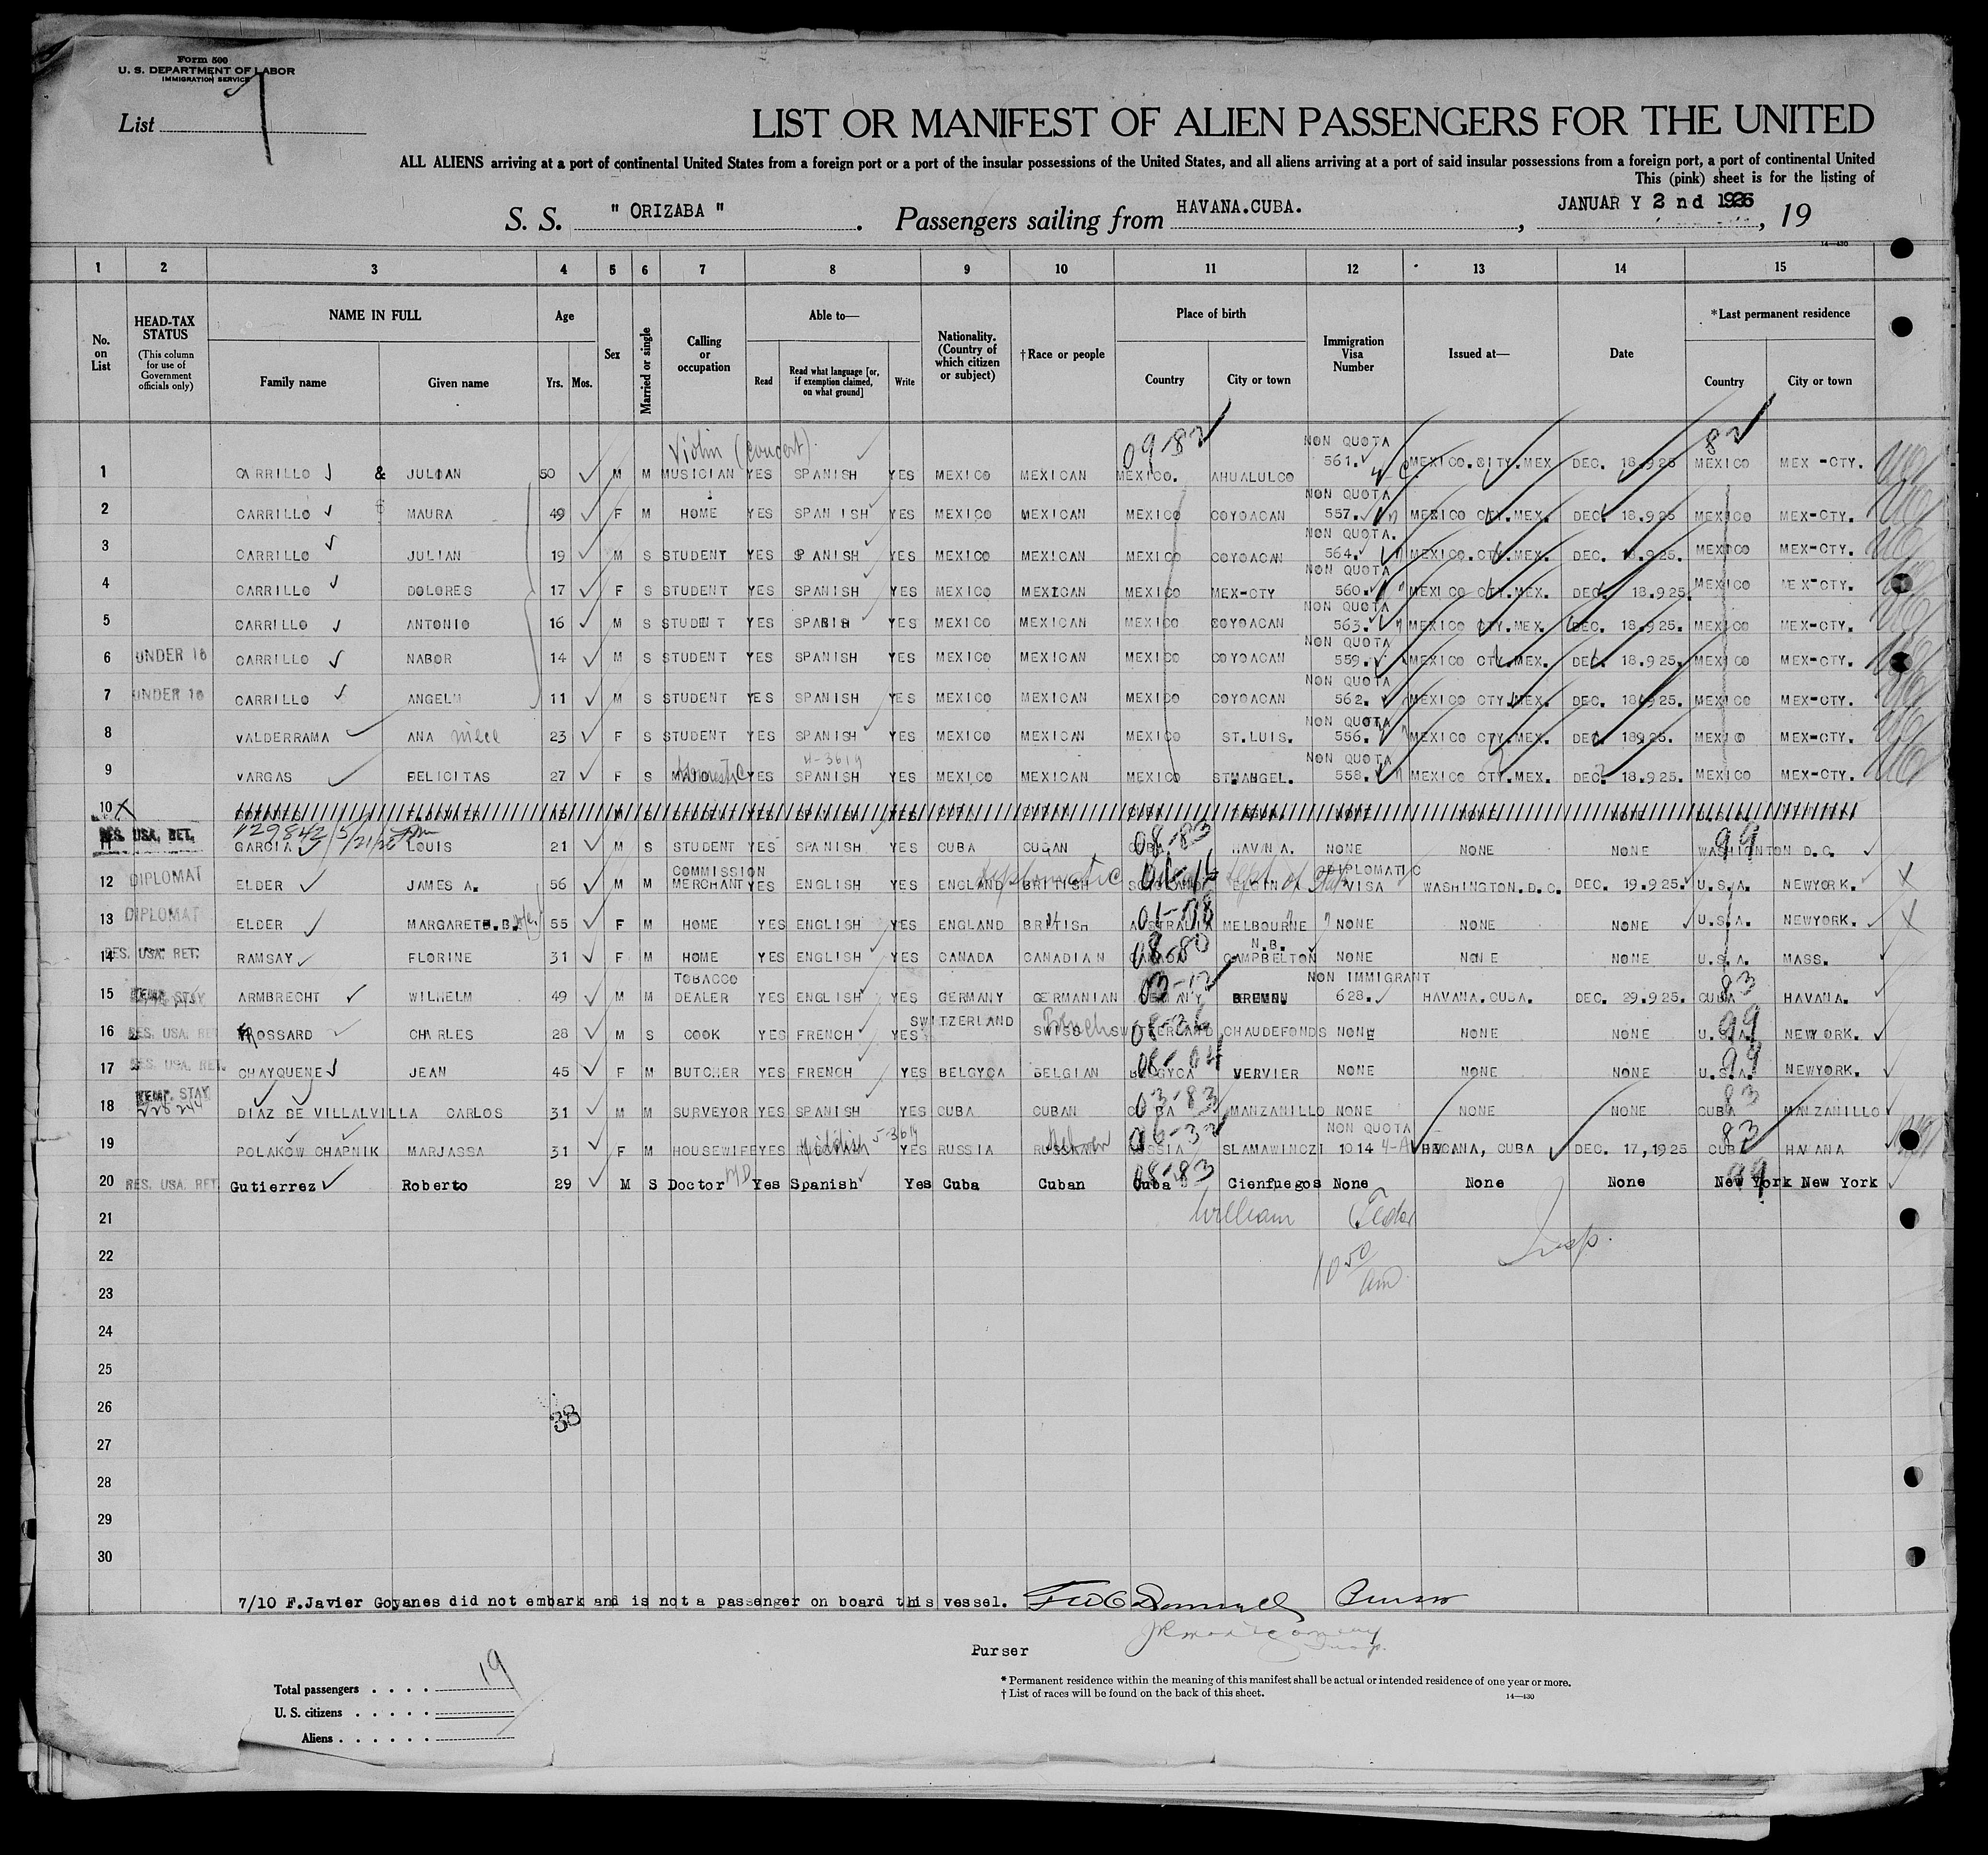 Form 500
U. S. DEPARTMENT OF LABOR
IMMIGRATION SERVICE
List 7
LIST OR MANIFEST OF ALIEN PASSENGERS FOR THE UNITED
ALL ALIENS arriving at a port of continental United States from a foreign port or a port of the insular possessions of the United States, and all aliens arriving at a port of said insular possessions from a foreign port, a port of continental United
This (pink) sheet is for the listing of
S. S. " ORIZABA " . Passengers sailing from HAVANA.CUBA. , JANUAR Y 2 nd 1926 , 19
14-430
1 2 3 4 5 6 7 8 9 10 11 12 13 14 15
No. on List
HEAD-TAX STATUS (This column for use of Government officials only)
NAME IN FULL Family name Given name
Age Yrs. Mos.
Sex
Married or single
Calling or occupation
Able to— Read Read what language [or, if exemption claimed, on what ground] Write
Nationality. (Country of which citizen or subject)
†Race or people
Place of birth Country City or town
Immigration Visa Number
Issued at—
Date
*Last permanent residence Country City or town
Violin (concert). 09-82 NON QUOTA 82
1 CARRILLO & JULIAN 50 M M MUSICIAN YES SPANISH YES MEXICO MEXICAN MEXICO. AHUALULCO 561. MEXICO.CITY.MEX DEC. 18.925 MEXICO MEX-CTY.
NON QUOTA
2 CARRILLO MAURA 49 F M HOME YES SPANISH YES MEXICO MEXICAN MEXICO COYOACAN 557. MEXICO CTY.MEX. DEC. 18.925 MEXICO MEX-CTY.
NON QUOTA.
3 CARRILLO JULIAN 19 M S STUDENT YES SPANISH YES MEXICO MEXICAN MEXICO COYOACAN 564. MEXICO.CTY.MEX. DEC. 18.925. MEXICO MEX-CTY.
NON QUOTA
4 CARRILLO DOLORES 17 F S STUDENT YES SPANISH YES MEXICO MEXICAN MEXICO MEX-CTY 560. MEXICO CTY.MEX. DEC. 18.925. MEXICO MEX-CTY.
NON QUOTA
5 CARRILLO ANTONIO 16 M S STUDENT YES YES MEXICO MEXICAN MEXICO COYOACAN 563. MEXICO CTY.MEX. DEC. 18.925. MEXICO MEX-CTY.
NON QUOTA
6 UNDER 16 CARRILLO NABOR 14 M S STUDENT YES SPANISH YES MEXICO MEXICAN MEXICO COYOACAN 559. MEXICO CTY.MEX. DEC. 18.925. MEXICO MEX-CTY.
NON QUOTA
7 UNDER 16 CARRILLO 11 M S STUDENT YES SPANISH YES MEXICO MEXICAN MEXICO COYOACAN 562. MEXICO CTY.MEX. DEC. 18.925. MEXICO MEX-CTY.
NON QUOTA
8 VALDERRAMA ANA niece 23 F S STUDENT YES SPANISH YES MEXICO MEXICAN MEXICO ST.LUIS. 556. MEXICO CTY.MEX. DEC. 18925. MEXICO MEX-CTY.
NON QUOTA
9 VARGAS FELICITAS 27 F S Domestic YES SPANISH YES MEXICO MEXICAN MEXICO 558. MEXICO CTY.MEX. DEC. 18.925. MEXICO MEX-CTY.
10 X
129842 5/21/26
11 RES. USA. RET. GARCIA LOUIS 21 M S STUDENT YES SPANISH. YES CUBA CUBAN CUBA 08-83 HAVANA. NONE NONE NONE WASHIGNTON D.C. 99
COMMISSION Diplomatic DIPLOMATIC
12 DIPLOMAT ELDER JAMES A. 56 M M MERCHANT YES ENGLISH YES ENGLAND BRITISH ELGIN VISA WASHINGTON.D.C. DEC. 19.925. U.S.A. NEWYORK. X
13 DIPLOMAT ELDER 55 F M HOME YES ENGLISH YES ENGLAND BRITISH AUSTRALIA MELBOURNE NONE NONE NONE U.S.A. NEWYORK. X
N.B.
14 RES. USA. RET. RAMSAY FLORINE 31 F M HOME YES ENGLISH YES CANADA CANADIAN CANADA CAMPBELTON NONE NONE NONE U.S.A. MASS.
TOBACCO NON IMMIGRANT
15 TEMP. STAY ARMBRECHT WILHELM 49 M M DEALER YES ENGLISH YES GERMANY GERMANIAN 03-12 BREMEN 628. HAVANA.CUBA. DEC. 29.925. CUBA 83 HAVANA.
SWITZERLAND
16 RES. USA. RET FROSSARD CHARLES 28 M S COOK YES FRENCH YES SWISS French SWITZERLAND CHAUDEFONDS NONE NONE NONE U.S.A. 99 NEWYORK.
17 RES. USA. RET. CHAYQUENE JEAN 45 F M BUTCHER YES FRENCH YES BELGYCA BELGIAN BELGYCA 08-04 VERVIER NONE NONE NONE U.S.A. 99 NEWYORK.
TEMP. STAY
18 DIAZ DE VILLALVILLA CARLOS 31 M M SURVEYOR YES SPANISH YES CUBA CUBAN CUBA 03-83 MANZANILLO NONE NONE NONE CUBA 83 MANZANILLO
NON QUOTA
19 POLAKOW CHAPNIK MARJASSA 31 F M HOUSEWIFE YES Yiddish YES RUSSIA Hebrew RUSSIA 06-32 SLAMAWINCZI 1014 4-A HAVANA, CUBA DEC. 17,1925 CUBA 83 HAVANA
20 RES. USA. RET. Gutierrez Roberto 29 M S Doctor MD Yes Spanish Yes Cuba Cuban Cuba 08-83 Cienfuegos None None None New York 99 New York
21 William
22 Insp.
10 50 am
23
24
25
26 38
27
28
29
30
7/10 F.Javier Goyanes did not embark and is not a passenger on board this vessel. Purser
Purser
Total passengers . . . . 19
U. S. citizens . . . . .
Aliens . . . . . .
* Permanent residence within the meaning of this manifest shall be actual or intended residence of one year or more.
† List of races will be found on the back of this sheet. 14—430